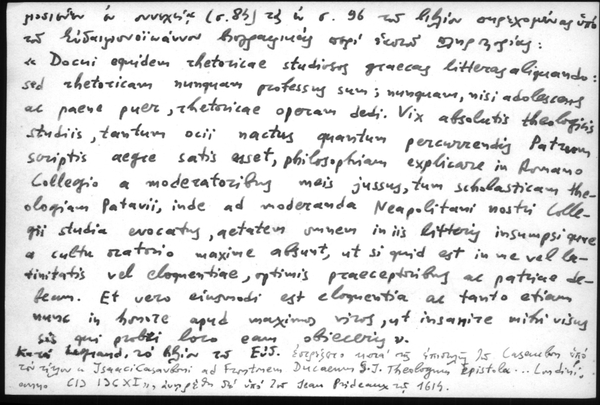 ποσιεύει ἐν συνεχείᾳ (σ. 84) τὰς ἐν σ. 96 τοῦ βιβλίου παρεχομένας ὑπὸ
τοῦ Εὐδαιμονοϊωάννου βιογραφικὰς περὶ ἑαυτοῦ πληροφορίας:
« Docui equidem rhetoricae studiosos graecas litteras aliquando:
sed rhetoricam nunquam professus sum; nunquam, nisi adolescens
ac paene puer, rhetoricae operam dedi. Vix absolutis theologicis
studiis, tantum ocii nactus quantum percurrendis Patrum
scriptis aegre satis esset, philosophiam explicare in Romano
Collegio a moderatoribus meis jussus, tum scholasticam the-
ologiam Patavii, inde ad moderanda Neapolitani nostri Colle-
gii studia evocatus, aetatem omnem in iis litteris insumpsi quae
a cultu oratorio maxime absunt, ut si quid est in me vel la-
tinitatis vel eloquentiae, optimis praeceptoribus ac patriae de-
beam. Et vero eiusmodi est eloquentia ac tanto etiam
nunc in honore apud maximos viros, ut insanire mihi visus
sis qui probri loco eam obieceris ».
Κατὰ Legrand, τὸ βιβλίον τοῦ Εὐδ. ἐστρέφετο κατὰ τῆς ἐπιστολῆς Is. Casaubon ὑπὸ
τὸν τίτλον « Isaaci Casauboni ad Frontonem Ducaeum S.J. Theologum Epistola... Londini.
anno CIƆ IƆCXI», ὑπὸ τοῦ Jean Prideaux τῷ 1614.